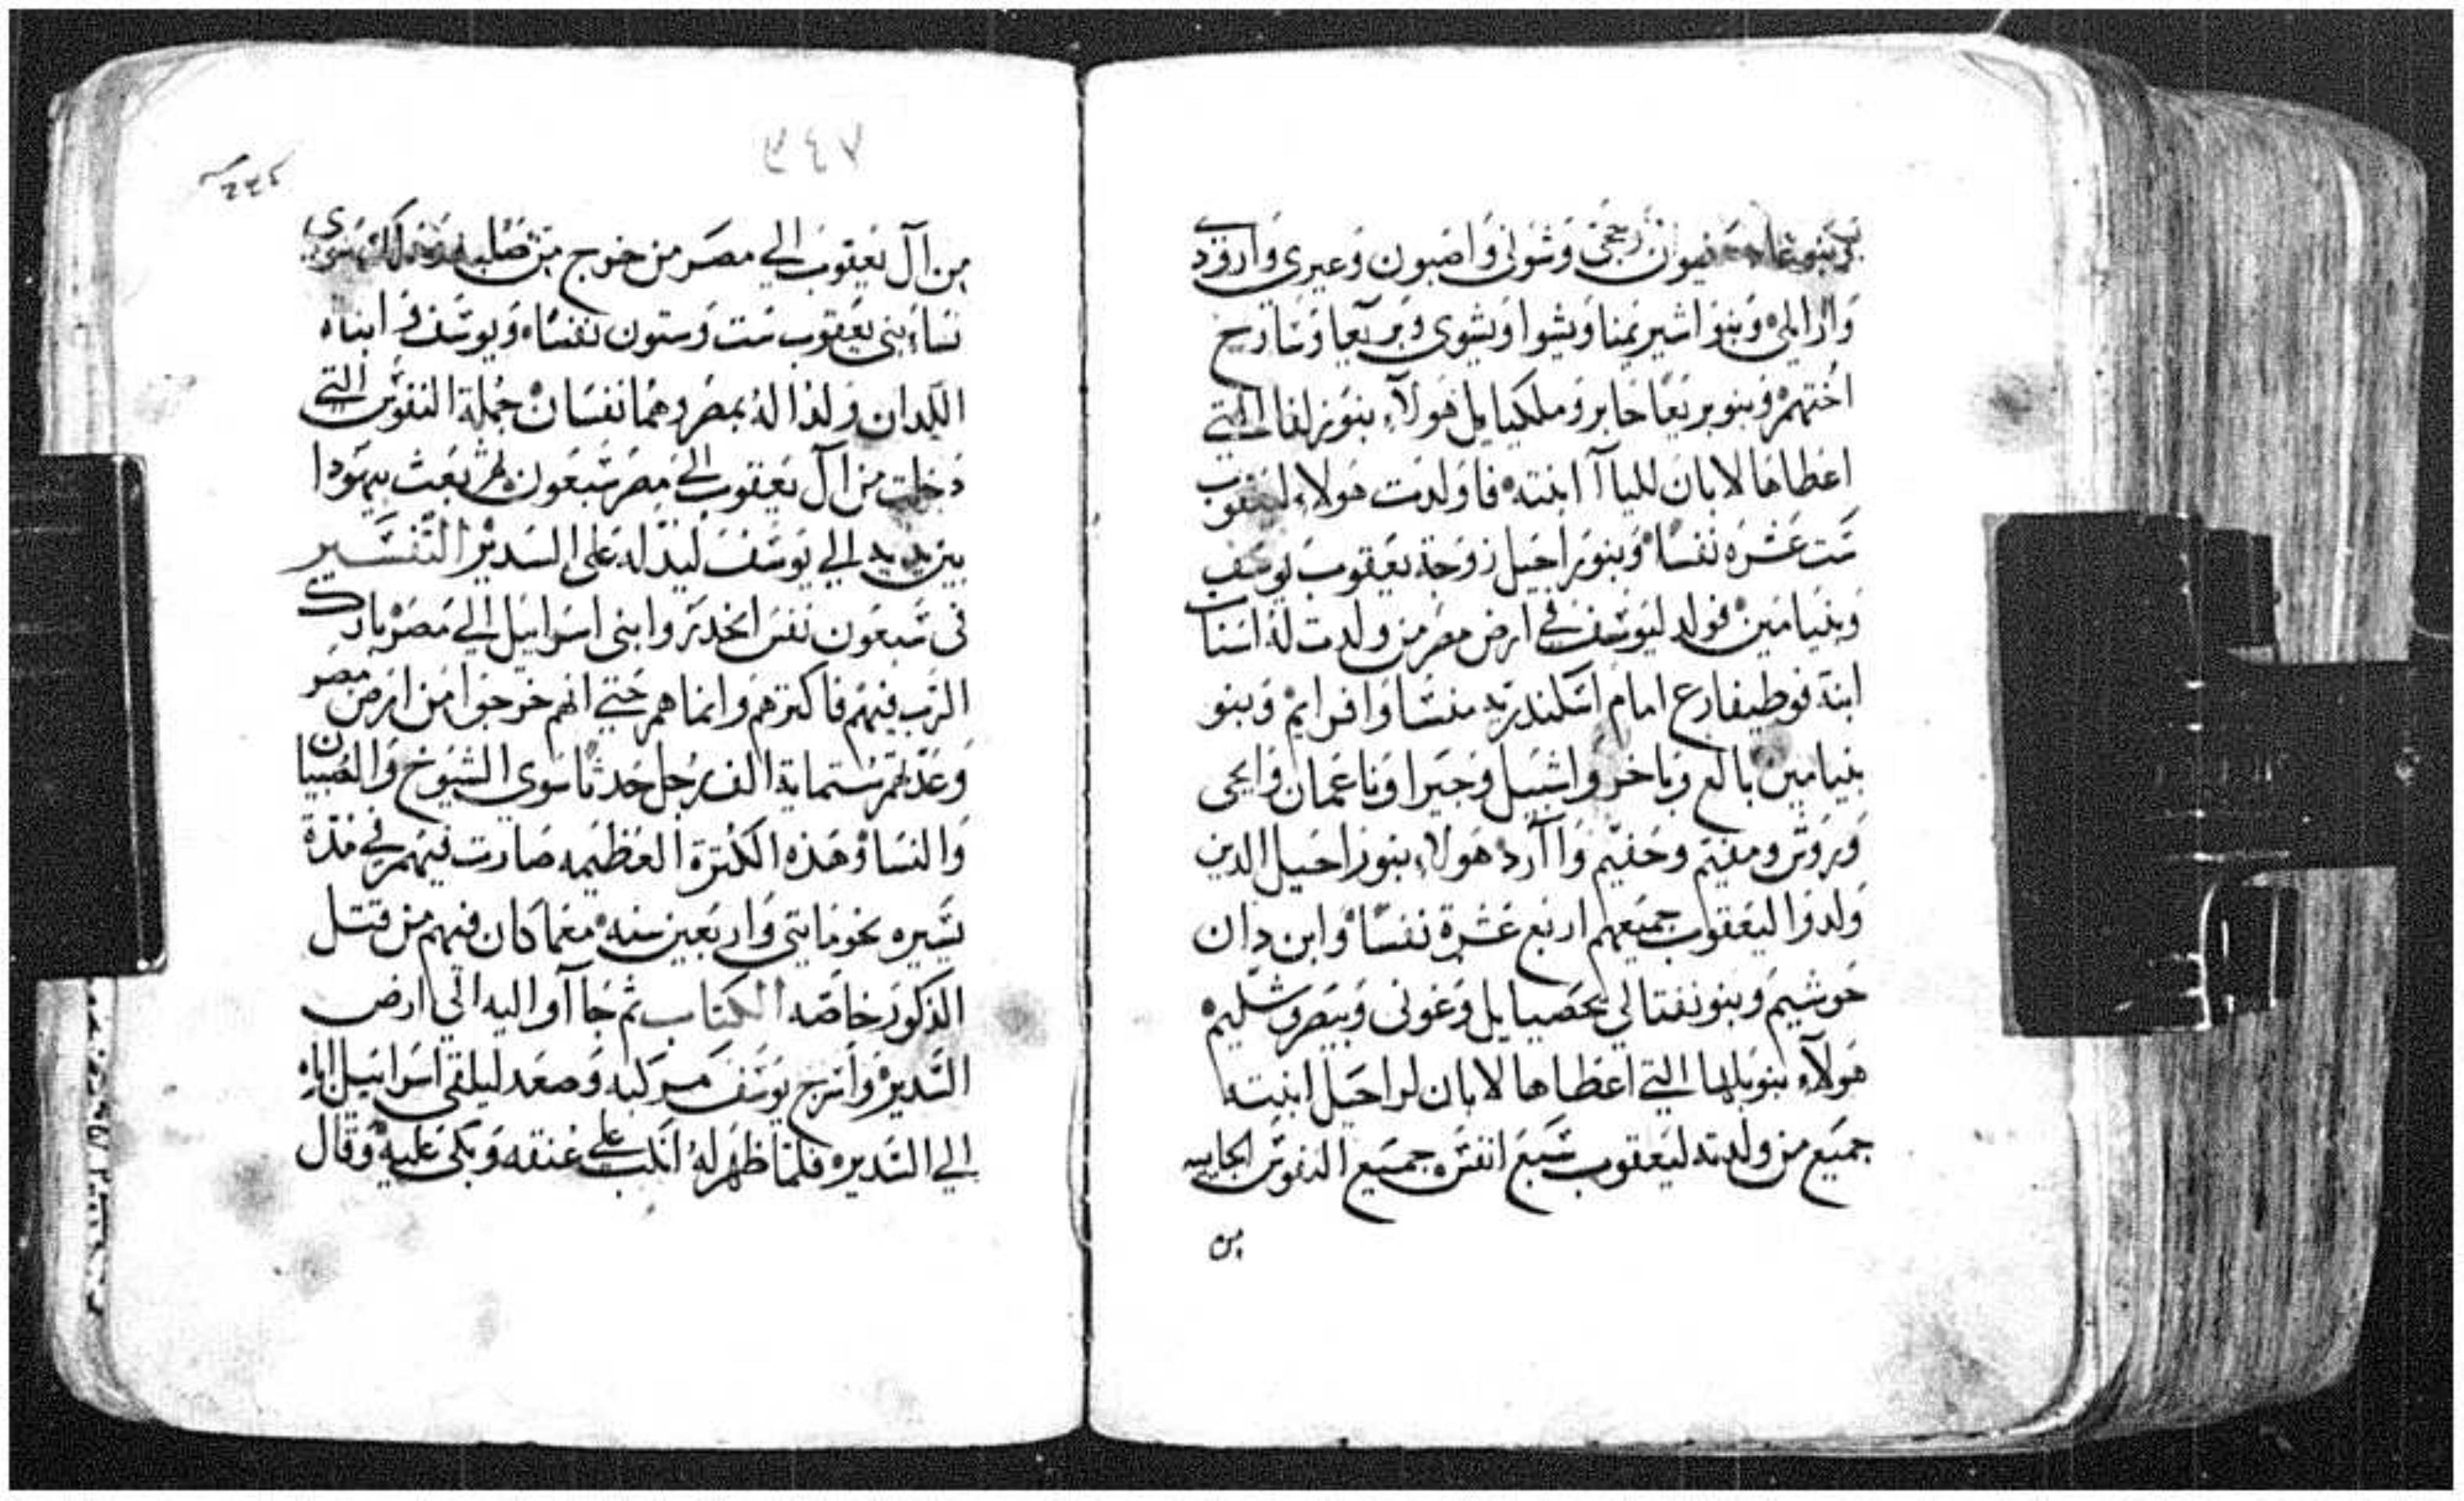 وبنو غاد صفيون وحجى وشونى واصبون وعيرى وارودى
وارايلى وبنو اشير يمنا ويشوا ويشوى وبريعا وسارح
اختهم وبنو بريعا حابر وملكيايل هولآء بنو زلفا التى
اعطاها لابان لليآ ابنته فاولدت هولاء ليعقوب
ست عشره نفسًا وبنو راحيل زوجة يعقوب يوسف
وبنيامين فولد ليوسف في ارض مصر من ولدت له اسنات
ابنة فوطيفارع امام اسكندريه منسا وافرايم وبنو
بنيامين بالع وباخر واشبيل وجيرا وناعمان وايحى
وروش ومفيم وحفيم وآارد هولاء بنو راحيل الدين
ولدوا ليعقوب جميعهم اربع عشرة نفسًا وابن دان
حوشيم وبنو نفتالي يحصيايل وغونى وييصر وشليم
هولآء بنو بلها التي اعطاها لابان لراحيل ابنته
جميع من ولدته ليعقوب سبع انفس جميع النفوس الجاييه
من
٣٤٧
من آل يعقوب الي مصر من خرج من صلبه سوى
نساء بنى يعقوب ست وستون نفسًا ويوسف وابناه
اللدان ولدا له بمصر وهما نفسان جملة النفوس التي
دخلت من آل يعقوب الي مصر سبعون ثم بعث يهودا
بين يديه الي يوسف ليدله على السدير التفسير
فى سبعون نفس انحدروا بنى اسراييل الي مصر بارك
الرب فيهم فاكترهم وانماهم حتي انهم خرجوا من ارض مصر
وعدتهم ستماية الف رجل حدثا سوي الشيوخ والصبيان
والنسا وهذه الكترة العظيمه صارت فيهم في مدة
يسيره نحو مايتي واربعين سنه معما كان فيهم من قتل
الدكور خاصه الكتاب ثم جآاوا اليه الي ارض
السدير واسرج يوسف مركبه وصعد ليلقي اسراييل اباه
الي السدير فلما ظهر له انكب علي عنقه وبكى عليه وقال